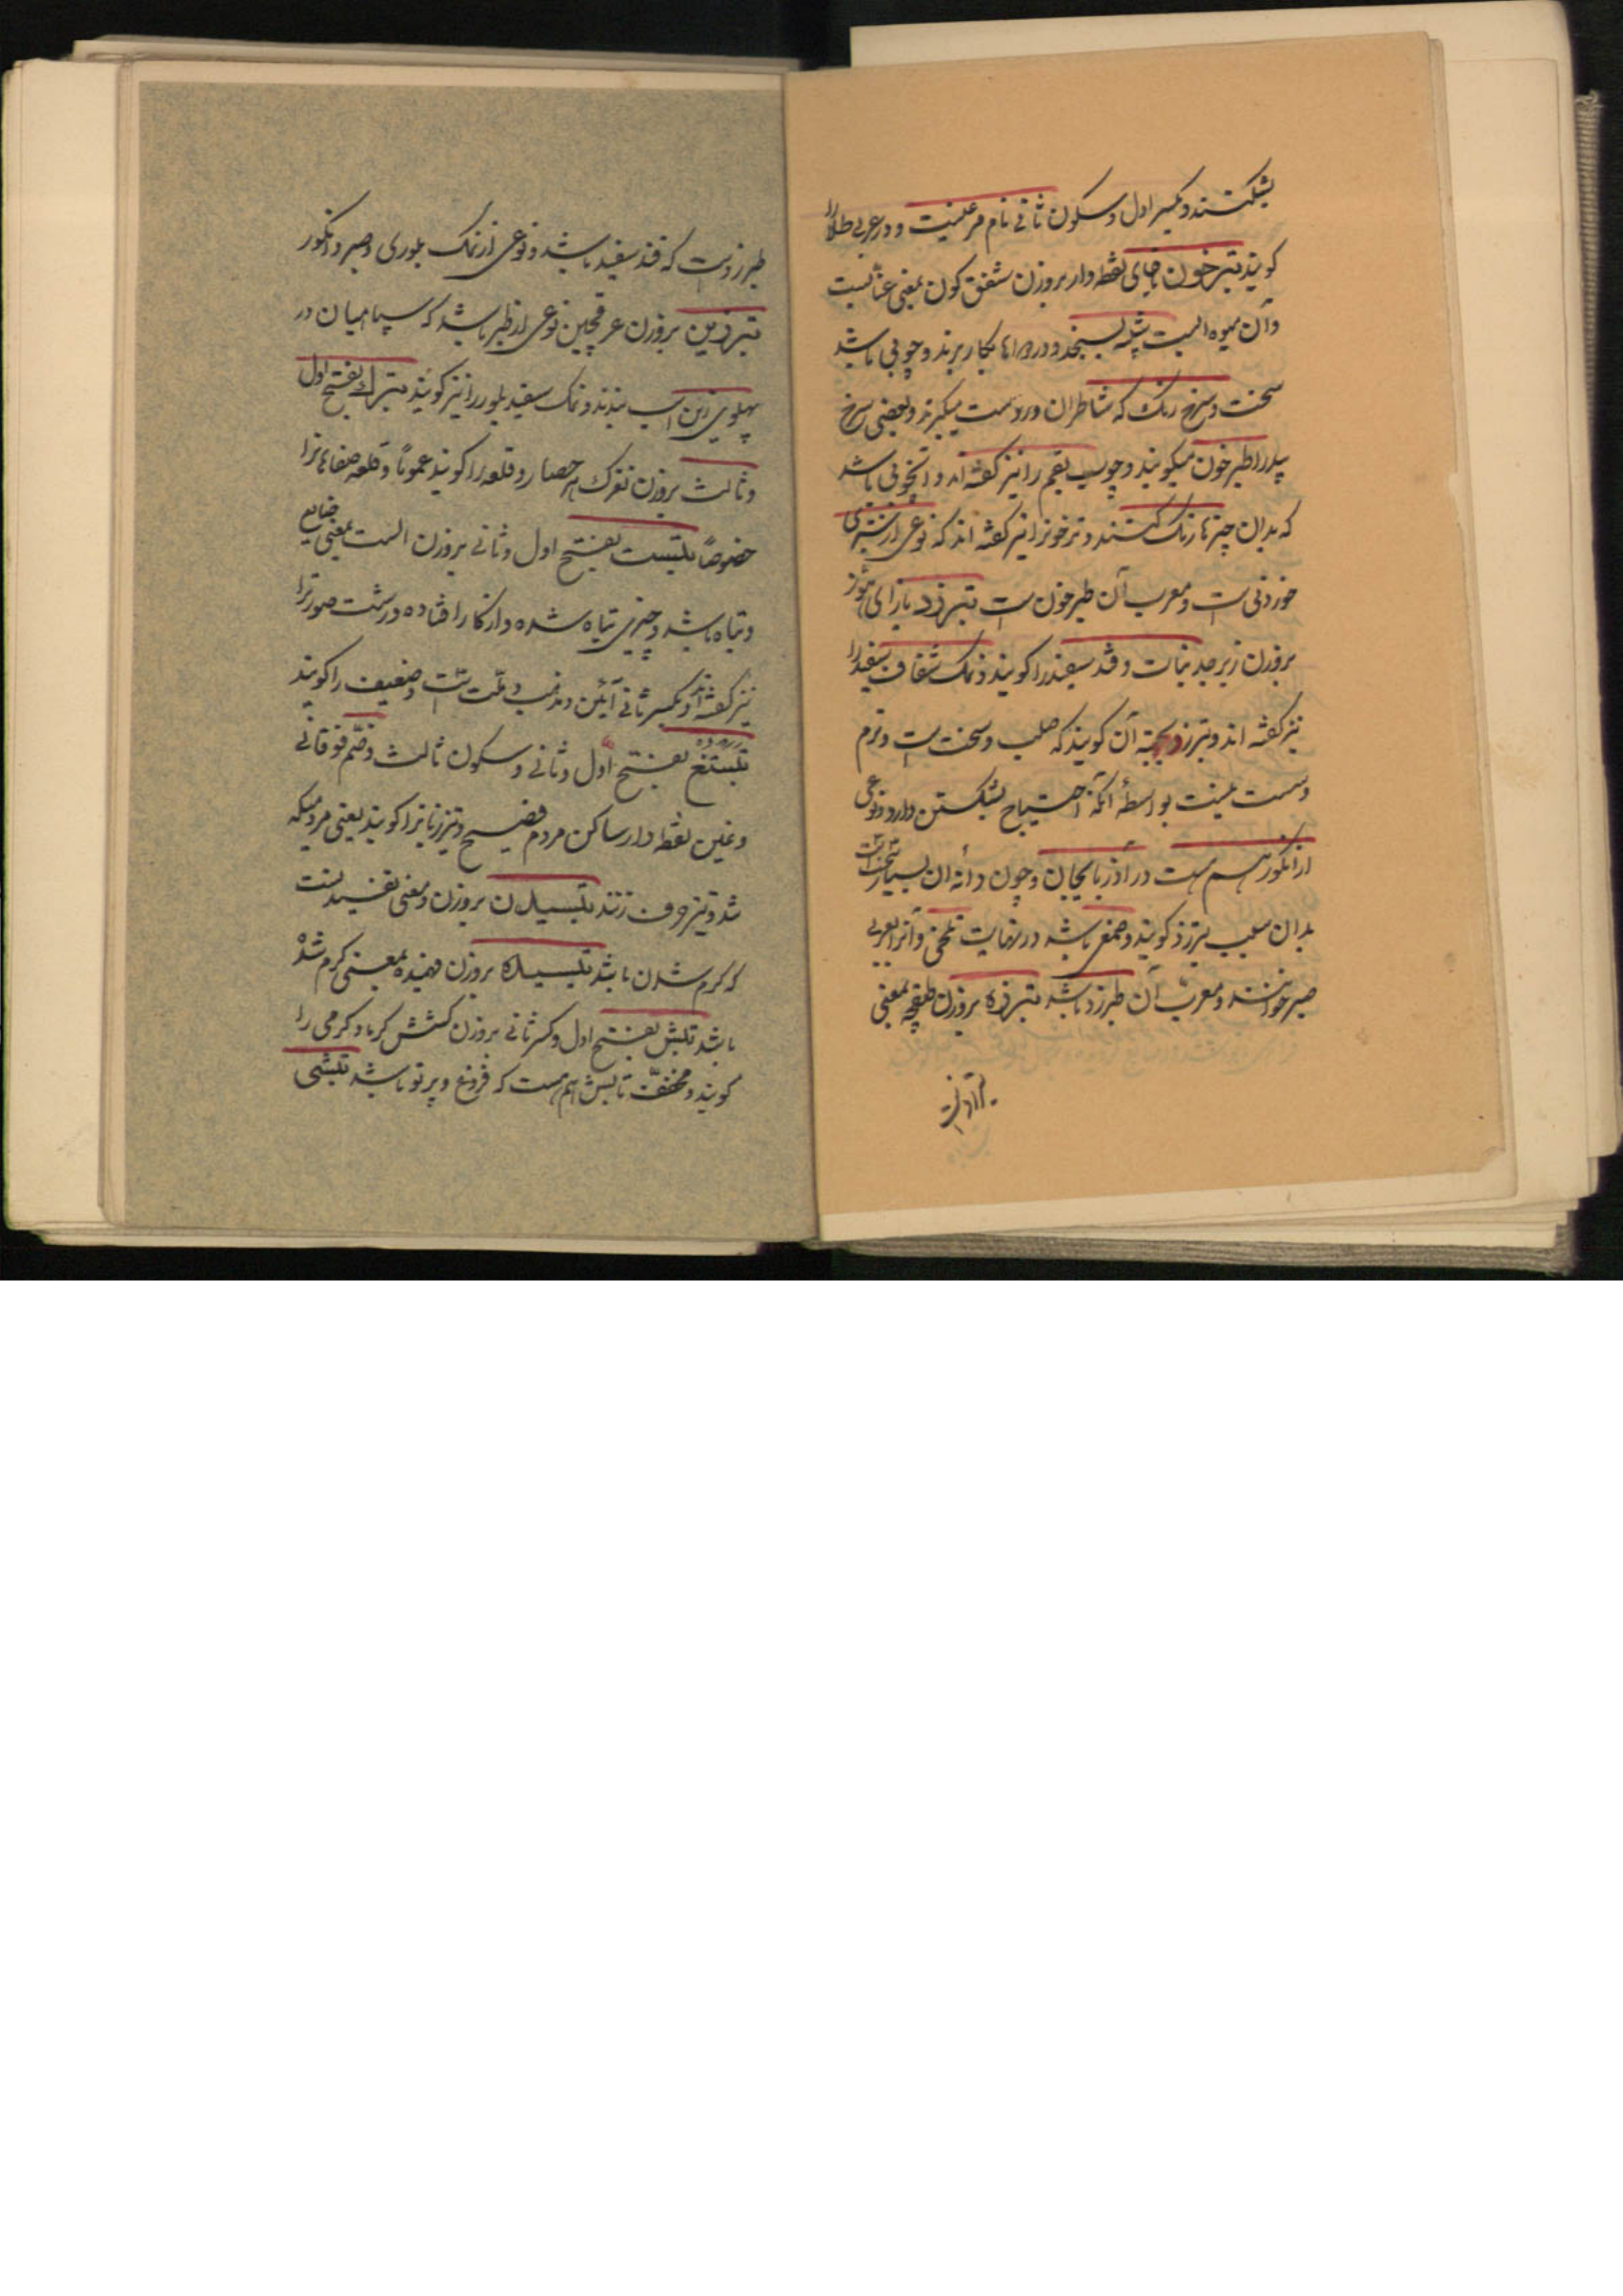 بشکنند و بکسر اول و سکون ثانی نام مرغیست و در عربی طلا را
کویند تبرخون باخای نقطه دار بروزن شفق کون بمعنی عنابست
و آن میوه ایست شبیه بسنجد و در دواها بکار برند و چوبی باشد
سخت و سرخ رنک که شاطران در دست میکیرند و بعضی سرخ
بید را طبرخون میکویند و چوب بقم را نیز کفته اند و آنچوبی باشد
که بدان چیزها رنک کنند و ترخونرا نیز کفته اند که نوعی از سبزی
خوردنی ست و معرب آن طبرخون ست تبرزد بازای هوز
بروزن زبرجد نبات و قند سفید را کویند و نمک شفاف سفید را
نیز کفته اند و تبرزد بجهة آن کویند که صلب و سخت ست و نرم
و سست نیست بواسطهٔ آنکه احتیاج بشکستن دارد و نوعی
از انکور هم هست در آذربایجان و چون دانه آن بسیار سخت است
بدان سبب تبرزد کویند و صمغی باشد در نهایت تلخی و آنرا بعربی
صبر خوانند و معرب آن طبرزد باشد تبرزه بروزن طبقچه بمعنی
طبرزدست که قند سفید باشد و نوعی از نمک بلوری و صبر و انکور
تبرزین بروزن عرقچین نوعی از تبر باشد که سپاهیان در
پهلوی زین اسب بندند و نمک سفید بلور را نیز کویند تبرک بفتح اول
و ثالث بروزن نغزک حصار و قلعه را کویند عموماً و قلعه صفاهانرا
خصوصاً تبست بفتح اول و ثانی بروزن الست بمعنی ضایع
و تباه باشد و چیزی تباه شده و از کار افتاده و زشت صورترا
نیز کفته اند و بکسر ثانی آئین و مذهب و ملت ست و ضعیف را کویند
تبستغ بفتح اول و ثانی و سکون ثالث و ضم فوقانی
و غین نقطه دار ساکن مردم فصیح و تیز زبانرا کویند یعنی مردمیکه
تند و تیز حرف زنند تبسیدن بروزن و معنی تفسیدنست
که کرم شدن باشد تبسیده بروزن فهمیده بمعنی کرم شده
باشد تبش بفتح اول و کسر ثانی بروزن کشش کرما و کرمی را
کویند و مخفف تابش هم هست که فروغ و پرتو باشد تبشی